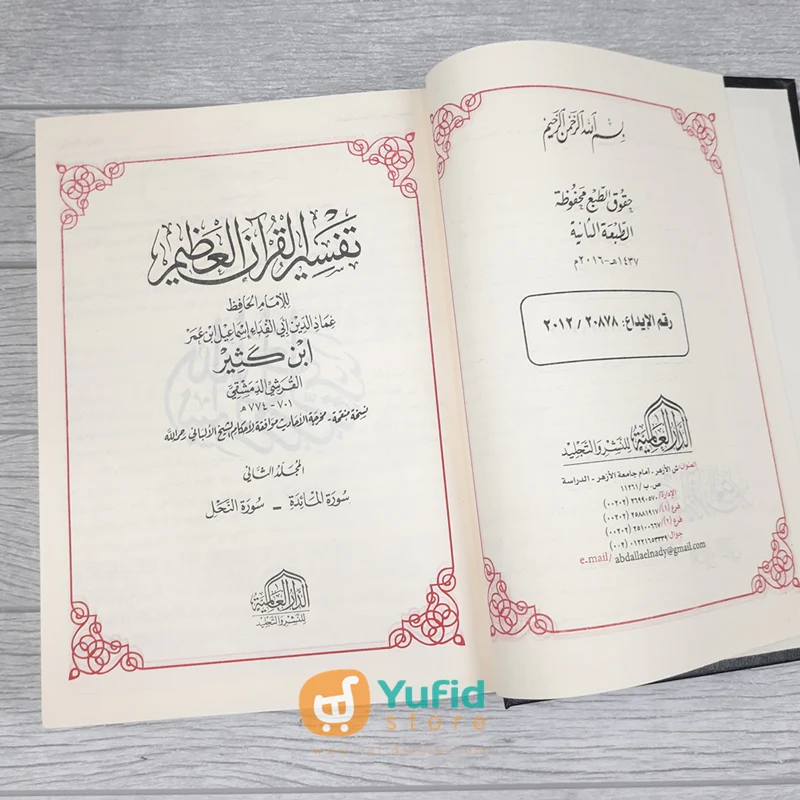 بسم الله الرحمن الرحيم
حقوق الطبع محفوظة
الطبعة الثانية
١٤٣٧هـ - ٢٠١٦م
رقم الإيداع: ٢٠٨٧٨ / ٢٠١٢
الدار العالمية للنشر والتجليد
العنوان: ش الأزهر - امام جامعة الأزهر - الدراسة
ص . ب / ١١٢٦١
الإدارة/ ٢٦٩٩٠٥٧٠ (٠٠٢٠٢)
فرع (١)/ ٢٥٨٨١٩١٧ (٠٠٢٠٢)
فرع (٢)/ ٢٥١٠٠٦٦٧ (٠٠٢٠٢)
جوال: ٠١٢٢١٦٥٣٣٣٩ (٠٠٢)
e.mail/ abdallaelnady@gmail.com
تفسير القرآن العظيم
للإمام الحافظ
عماد الدين أبي الفداء إسماعيل ابن عمر
ابن كثير
القرشي الدمشقي
٧٠١ - ٧٧٤ هـ
نسخة منقحة - مخرجة الأحاديث موافقة لأحكام الشيخ الألباني رحمه الله
المجلد الثاني
سورة المائدة - سورة النحل
الدار العالمية
للنشر والتجليد
Yufid
store